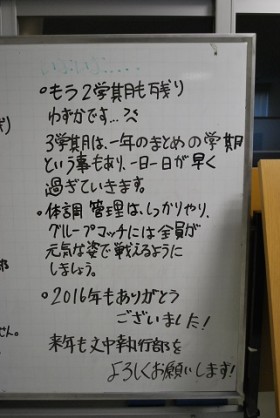 いよいよ....
○もう2学期も残り
わずかです…
3学期は、一年のまとめの学期
という事もあり、一日一日が早く
過ぎていきます。
○体調管理は、しっかりやり、
グループマッチには全員が
元気な姿で戦えるように
しましょう。
○2016年もありがとう
ございました!
来年も文中執行部を
よろしくお願いします!